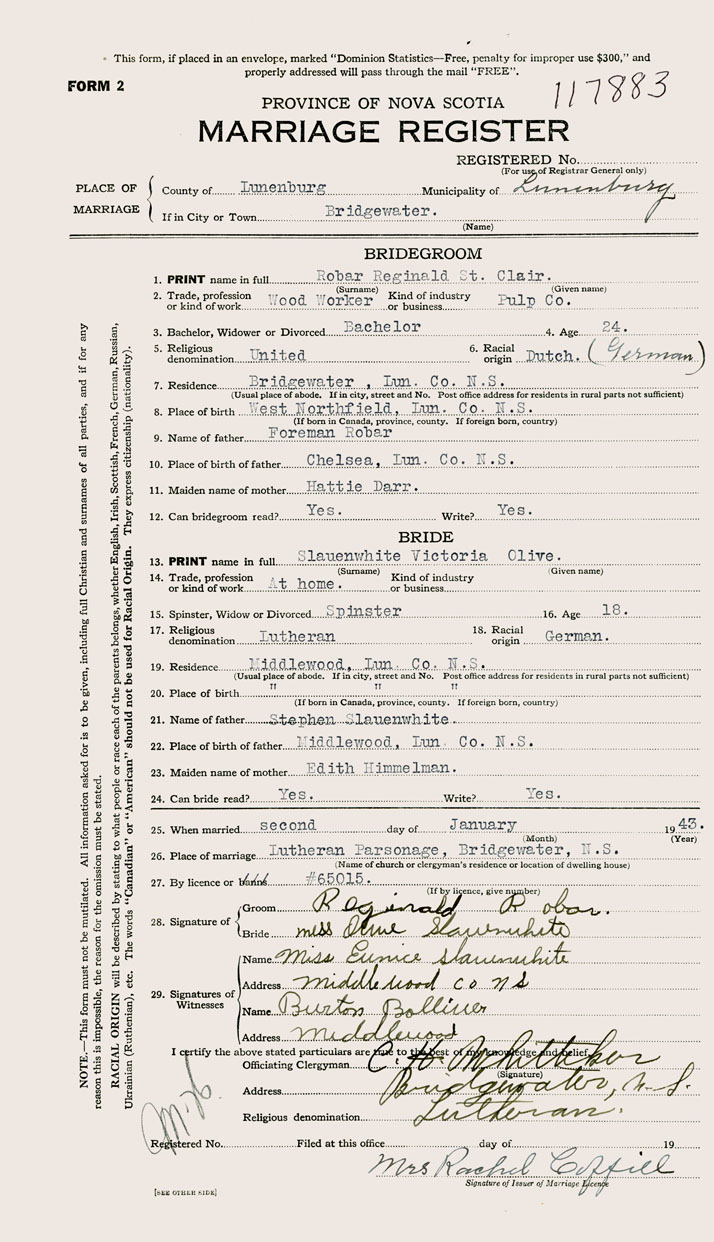 This form, if placed in an envelope, marked "Dominion Statistics—Free, penalty for improper use $300," and
properly addressed will pass through the mail "FREE".
FORM 2
117883
PROVINCE OF NOVA SCOTIA
MARRIAGE REGISTER
REGISTERED No.
(For use of Registrar General only)
PLACE OF MARRIAGE
County of Lunenburg Municipality of Lunenburg
If in City or Town Bridgewater.
(Name)
BRIDEGROOM
1. PRINT name in full Robar Reginald St. Clair.
(Surname) (Given name)
2. Trade, profession or kind of work Wood Worker Kind of industry or business Pulp Co.
3. Bachelor, Widower or Divorced Bachelor 4. Age 24.
5. Religious denomination United 6. Racial origin Dutch. (German)
7. Residence Bridgewater , Lun. Co. N.S.
(Usual place of abode. If in city, street and No. Post office address for residents in rural parts not sufficient)
8. Place of birth West Northfield, Lun. Co. N.S.
(If born in Canada, province, county. If foreign born, country)
9. Name of father Foreman Robar
10. Place of birth of father Chelsea, Lun. Co. N.S.
11. Maiden name of mother Hattie Darr.
12. Can bridegroom read? Yes. Write? Yes.
BRIDE
13. PRINT name in full Slauenwhite Victoria Olive.
(Surname) (Given name)
14. Trade, profession or kind of work At home. Kind of industry or business
15. Spinster, Widow or Divorced Spinster 16. Age 18.
17. Religious denomination Lutheran 18. Racial origin German.
19. Residence Middlewood, Lun. Co. N.S.
(Usual place of abode. If in city, street and No. Post office address for residents in rural parts not sufficient)
20. Place of birth " " "
(If born in Canada, province, county. If foreign born, country)
21. Name of father Stephen Slauenwhite.
22. Place of birth of father Middlewood, Lun Co. N.S.
23. Maiden name of mother Edith Himmelman.
24. Can bride read? Yes. Write? Yes.
25. When married second day of January 1943.
(Month) (Year)
26. Place of marriage Lutheran Parsonage, Bridgewater, N.S.
(Name of church or clergyman's residence or location of dwelling house)
27. By licence or banns #65015.
(If by licence, give number)
28. Signature of
Groom Reginald Robar.
Bride miss Olive Slauenwhite
29. Signatures of Witnesses
Name Miss Eunice Slauenwhite
Address middlewood co ns
Name Burton Bolliver
Address Middlewood
I certify the above stated particulars are true to the best of my knowledge and belief.
Officiating Clergyman C. H. Whitteker
(Signature)
Address Bridgewater, N.S.
Religious denomination Lutheran.
Registered No. Filed at this office day of 19
Mrs Rachel Coffill
Signature of Issuer of Marriage Licence
[SEE OTHER SIDE]
NOTE.—This form must not be mutilated. All information asked for is to be given, including full Christian and surnames of all parties, and if for any
reason this is impossible, the reason for the omission must be stated.
RACIAL ORIGIN will be described by stating to what people or race each of the parents belongs, whether English, Irish, Scottish, French, German, Russian,
Ukrainian (Ruthenian), etc. The words "Canadian" or "American" should not be used for Racial Origin. They express citizenship (nationality).